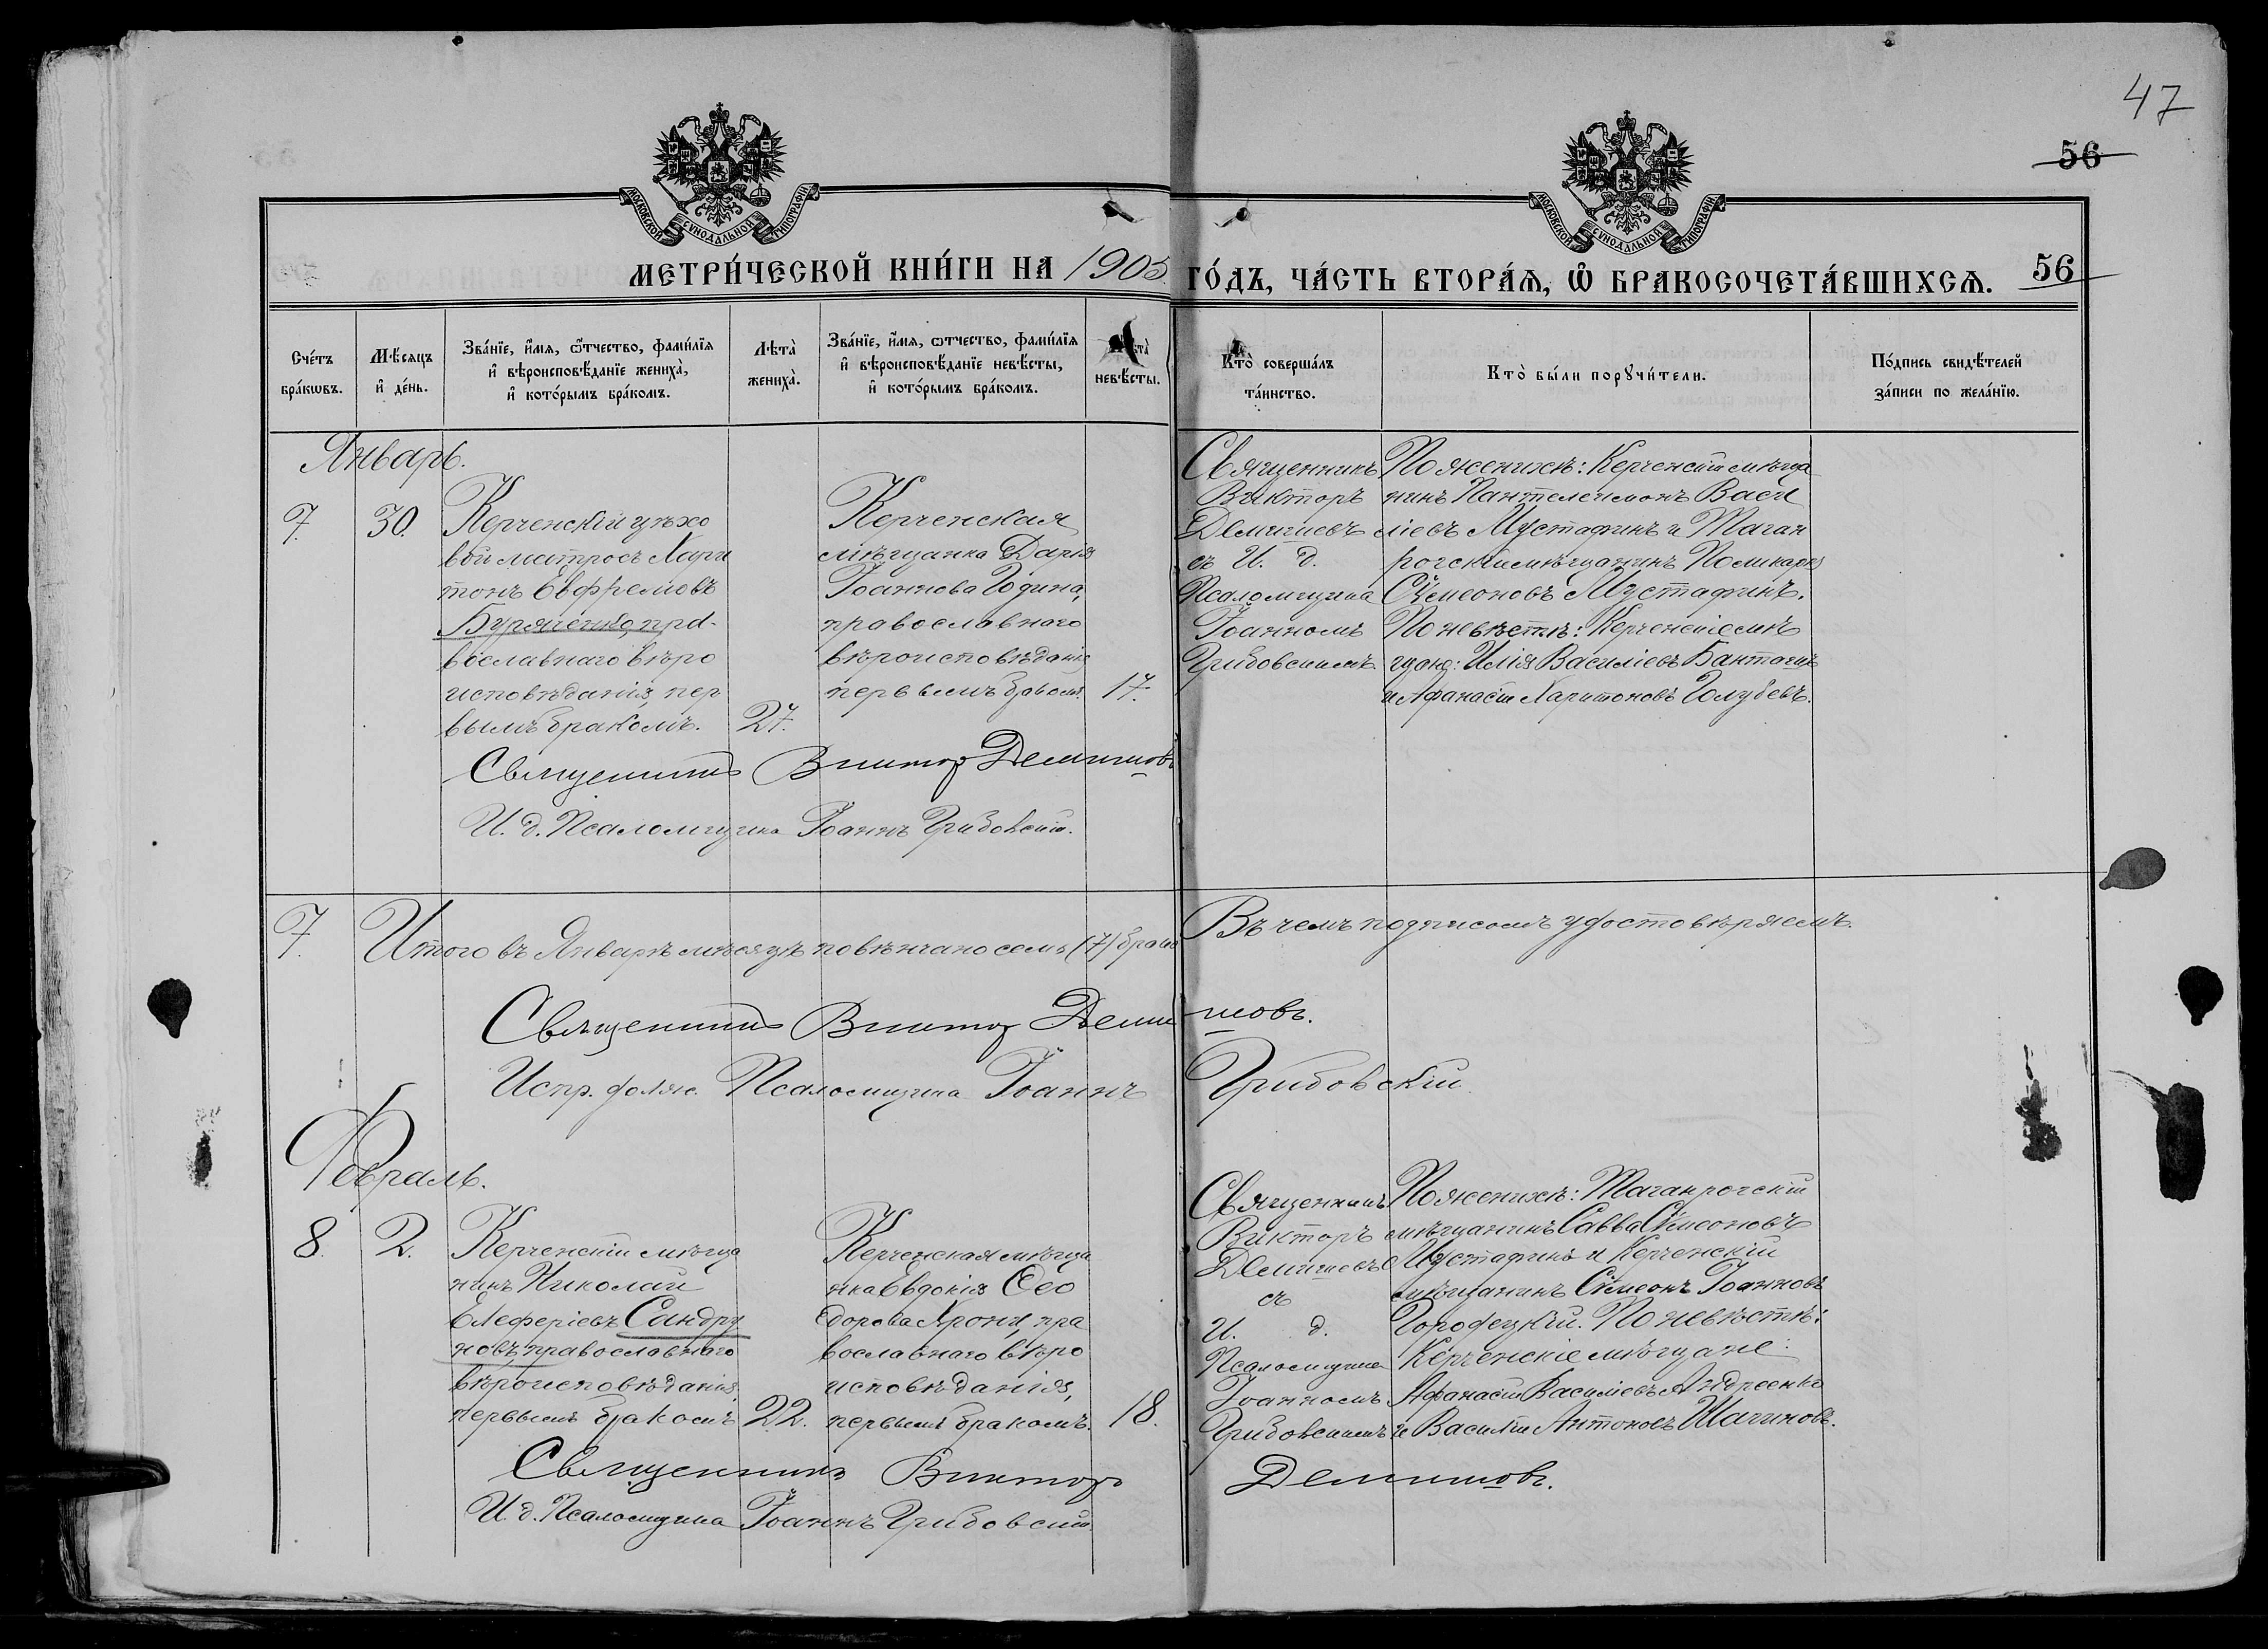 47
56
МОСКОВСКОЙ СѴНОДАЛЬНОЙ ТИПОГРАФІИ
МОСКОВСКОЙ СѴНОДАЛЬНОЙ ТИПОГРАФІИ
МЕТРИ́ЧЕСКОЙ КНИ́ГИ НА 1905 ГО́ДЪ, ЧА́СТЬ ВТОРА́Ѧ, Ѽ БРАКОСОЧЕТА́ВШИХСѦ. 56
Сче́тъ
бра́кѡвъ.
Мѣ́сяцъ
и҆ де́нь.
Зва́нїе, и҆́мѧ, ѻ҆́тчество, фами́лїѧ
и҆ вѣроисповѣ́данїе жениха̀,
и҆ кото́рымъ бра́комъ.
Лѣта̀
жениха̀.
Зва́нїе, и҆́мѧ, ѻ҆́тчество, фами́лїѧ
и҆ вѣроисповѣ́данїе невѣ́сты,
и҆ кото́рымъ бра́комъ.
Лѣта̀
невѣ́сты.
Кто̀ соверша́лъ
та́инство.
Кто̀ бы́ли порꙋчи́тели.
По́дпись свидѣ́телей
за́писи по жела́нїю.
Январь.
7.
30.
Керченскій цехо
вой матросъ Хари
тонъ Евфремовъ
Буряченко, пра-
вославнаго вѣро
исповѣданія, пер
вымъ бракомъ.
27.
Керченская
мѣщанка Дарія
Іоаннова Година,
православнаго
вѣроисповѣданія
первымъ бракомъ.
17.
Священникъ
Викторъ
Демишевъ
съ И. д.
Псаломщика
Іоанномъ
Грибовскимъ
По женихѣ: Керченскій мѣща
нинъ Пантелеимонъ Васи
ліевъ Мустафинъ и Таган
рогскій мѣщанинъ Поликарпъ
Сѵмеоновъ Мустафинъ.
По невѣстѣ: Керченскіе мѣ
щане: Илія Василіевъ
и Афанасій Харитоновъ Голубевъ.
Священникъ Викторъ Демишовъ
И. д. Псаломщика Іоаннъ Грибовскій.
7.
Итого въ Январѣ мѣсяцѣ повѣнчано семь (7) браковъ
Въ чемъ подписомъ удостовѣряемъ.
Священникъ Викторъ Демишовъ.
Испр. долж. Псаломщика Іоаннъ Грибовскій
Февраль.
8.
2.
Керченскій мѣща
нинъ Николай
Елеферіевъ Сандру
новъ, православнаго
вѣроисповѣданія,
первымъ бракомъ
22.
Керченская мѣща
нка Евдокія Ѳео
дорова Хрони, пра
вославнаго вѣро
исповѣданія,
первымъ бракомъ.
18.
Священникъ
Викторъ
Демишевъ
съ
И. д.
Псаломщика
Іоанномъ
Грибовскимъ
По женихѣ: Таганрогскій
мѣщанинъ Савва Сѵмеоновъ
Мустафинъ и Керченскій
мѣщанинъ Сѵмеонъ Іоанновъ
Городецкій. По невѣстѣ:
Керченскіе мѣщане:
Афанасій Василіевъ Андреенко
и Василій Антоновъ Шагиновъ.
Священникъ Викторъ Демишовъ.
И. д. Псаломщика Іоаннъ Грибовскій.